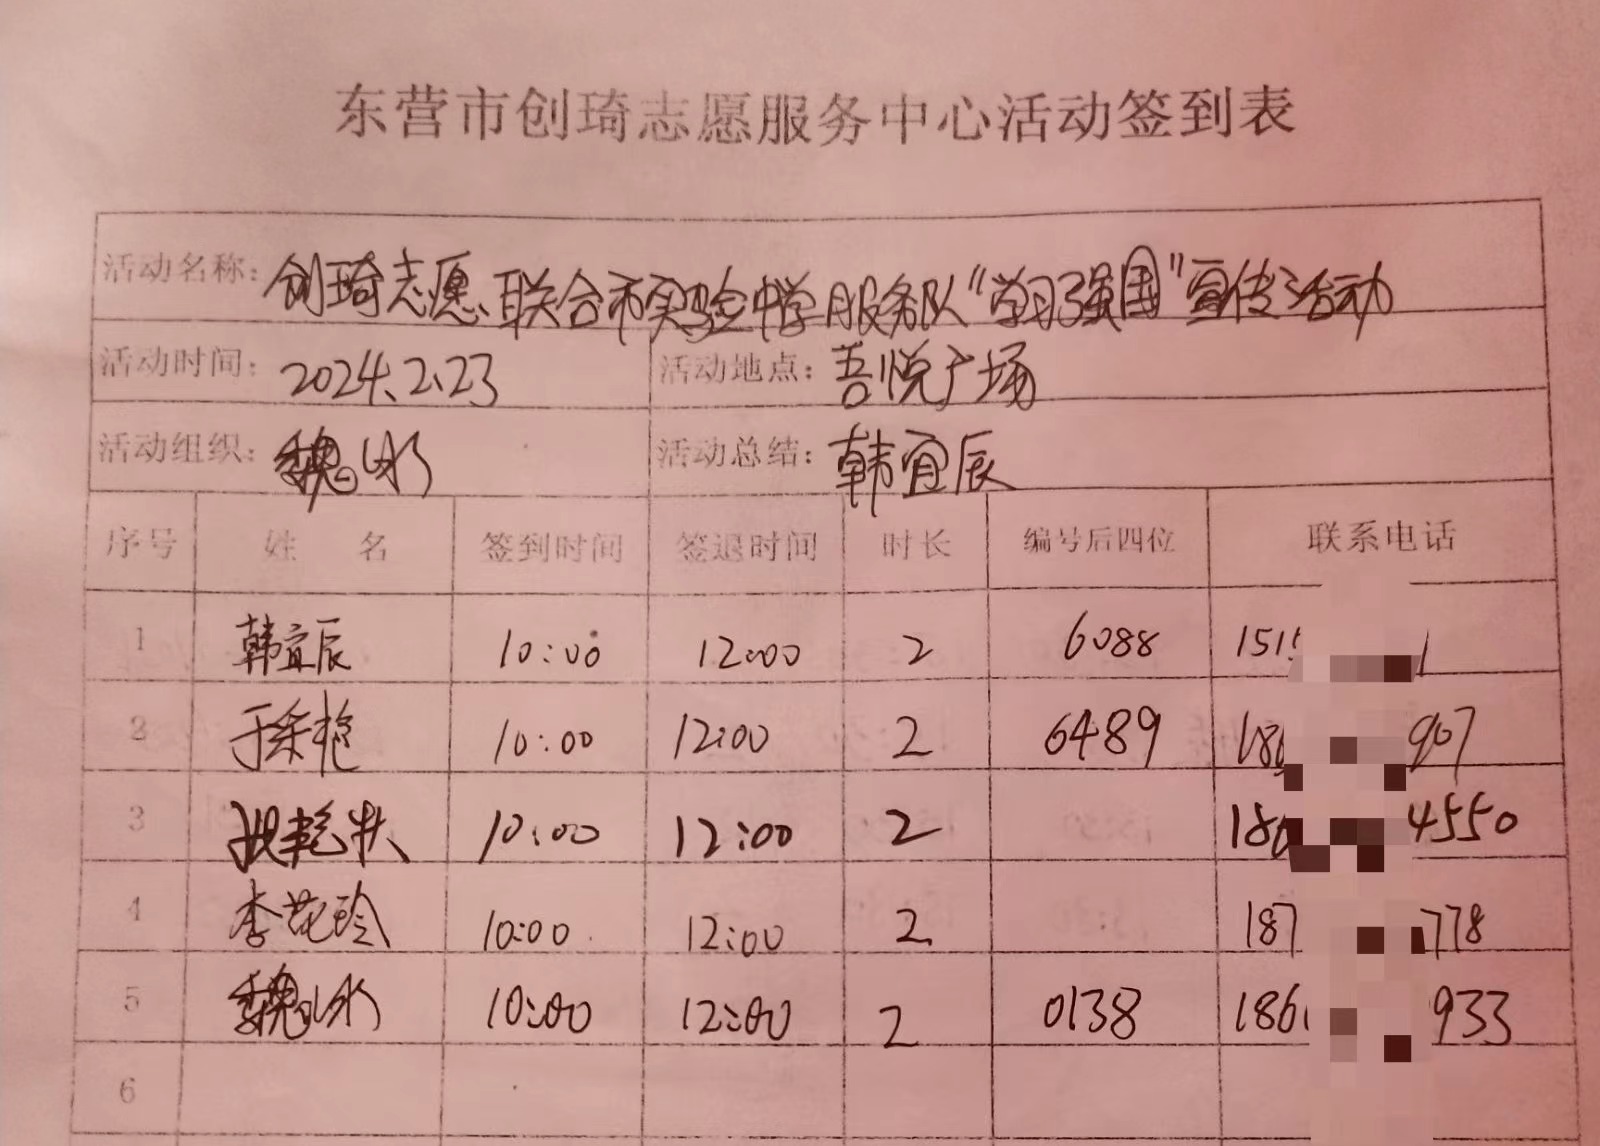 东营市创琦志愿服务中心活动签到表
活动名称：创琦志愿、联合市实验中学服务队“学习强国”宣传活动
活动时间：2024.2.23 活动地点：吾悦广场
活动组织：魏冰 活动总结：韩宜辰
序号 姓 名 签到时间 签退时间 时长 编号后四位 联系电话
1 韩宜辰 10:00 12:00 2 6088 151 1
2 10:00 12:00 2 6489 18 907
3 10:00 12:00 2 180 4550
4 李花玲 10:00 12:00 2 187 778
5 魏冰 10:00 12:00 2 0138 186 933
6